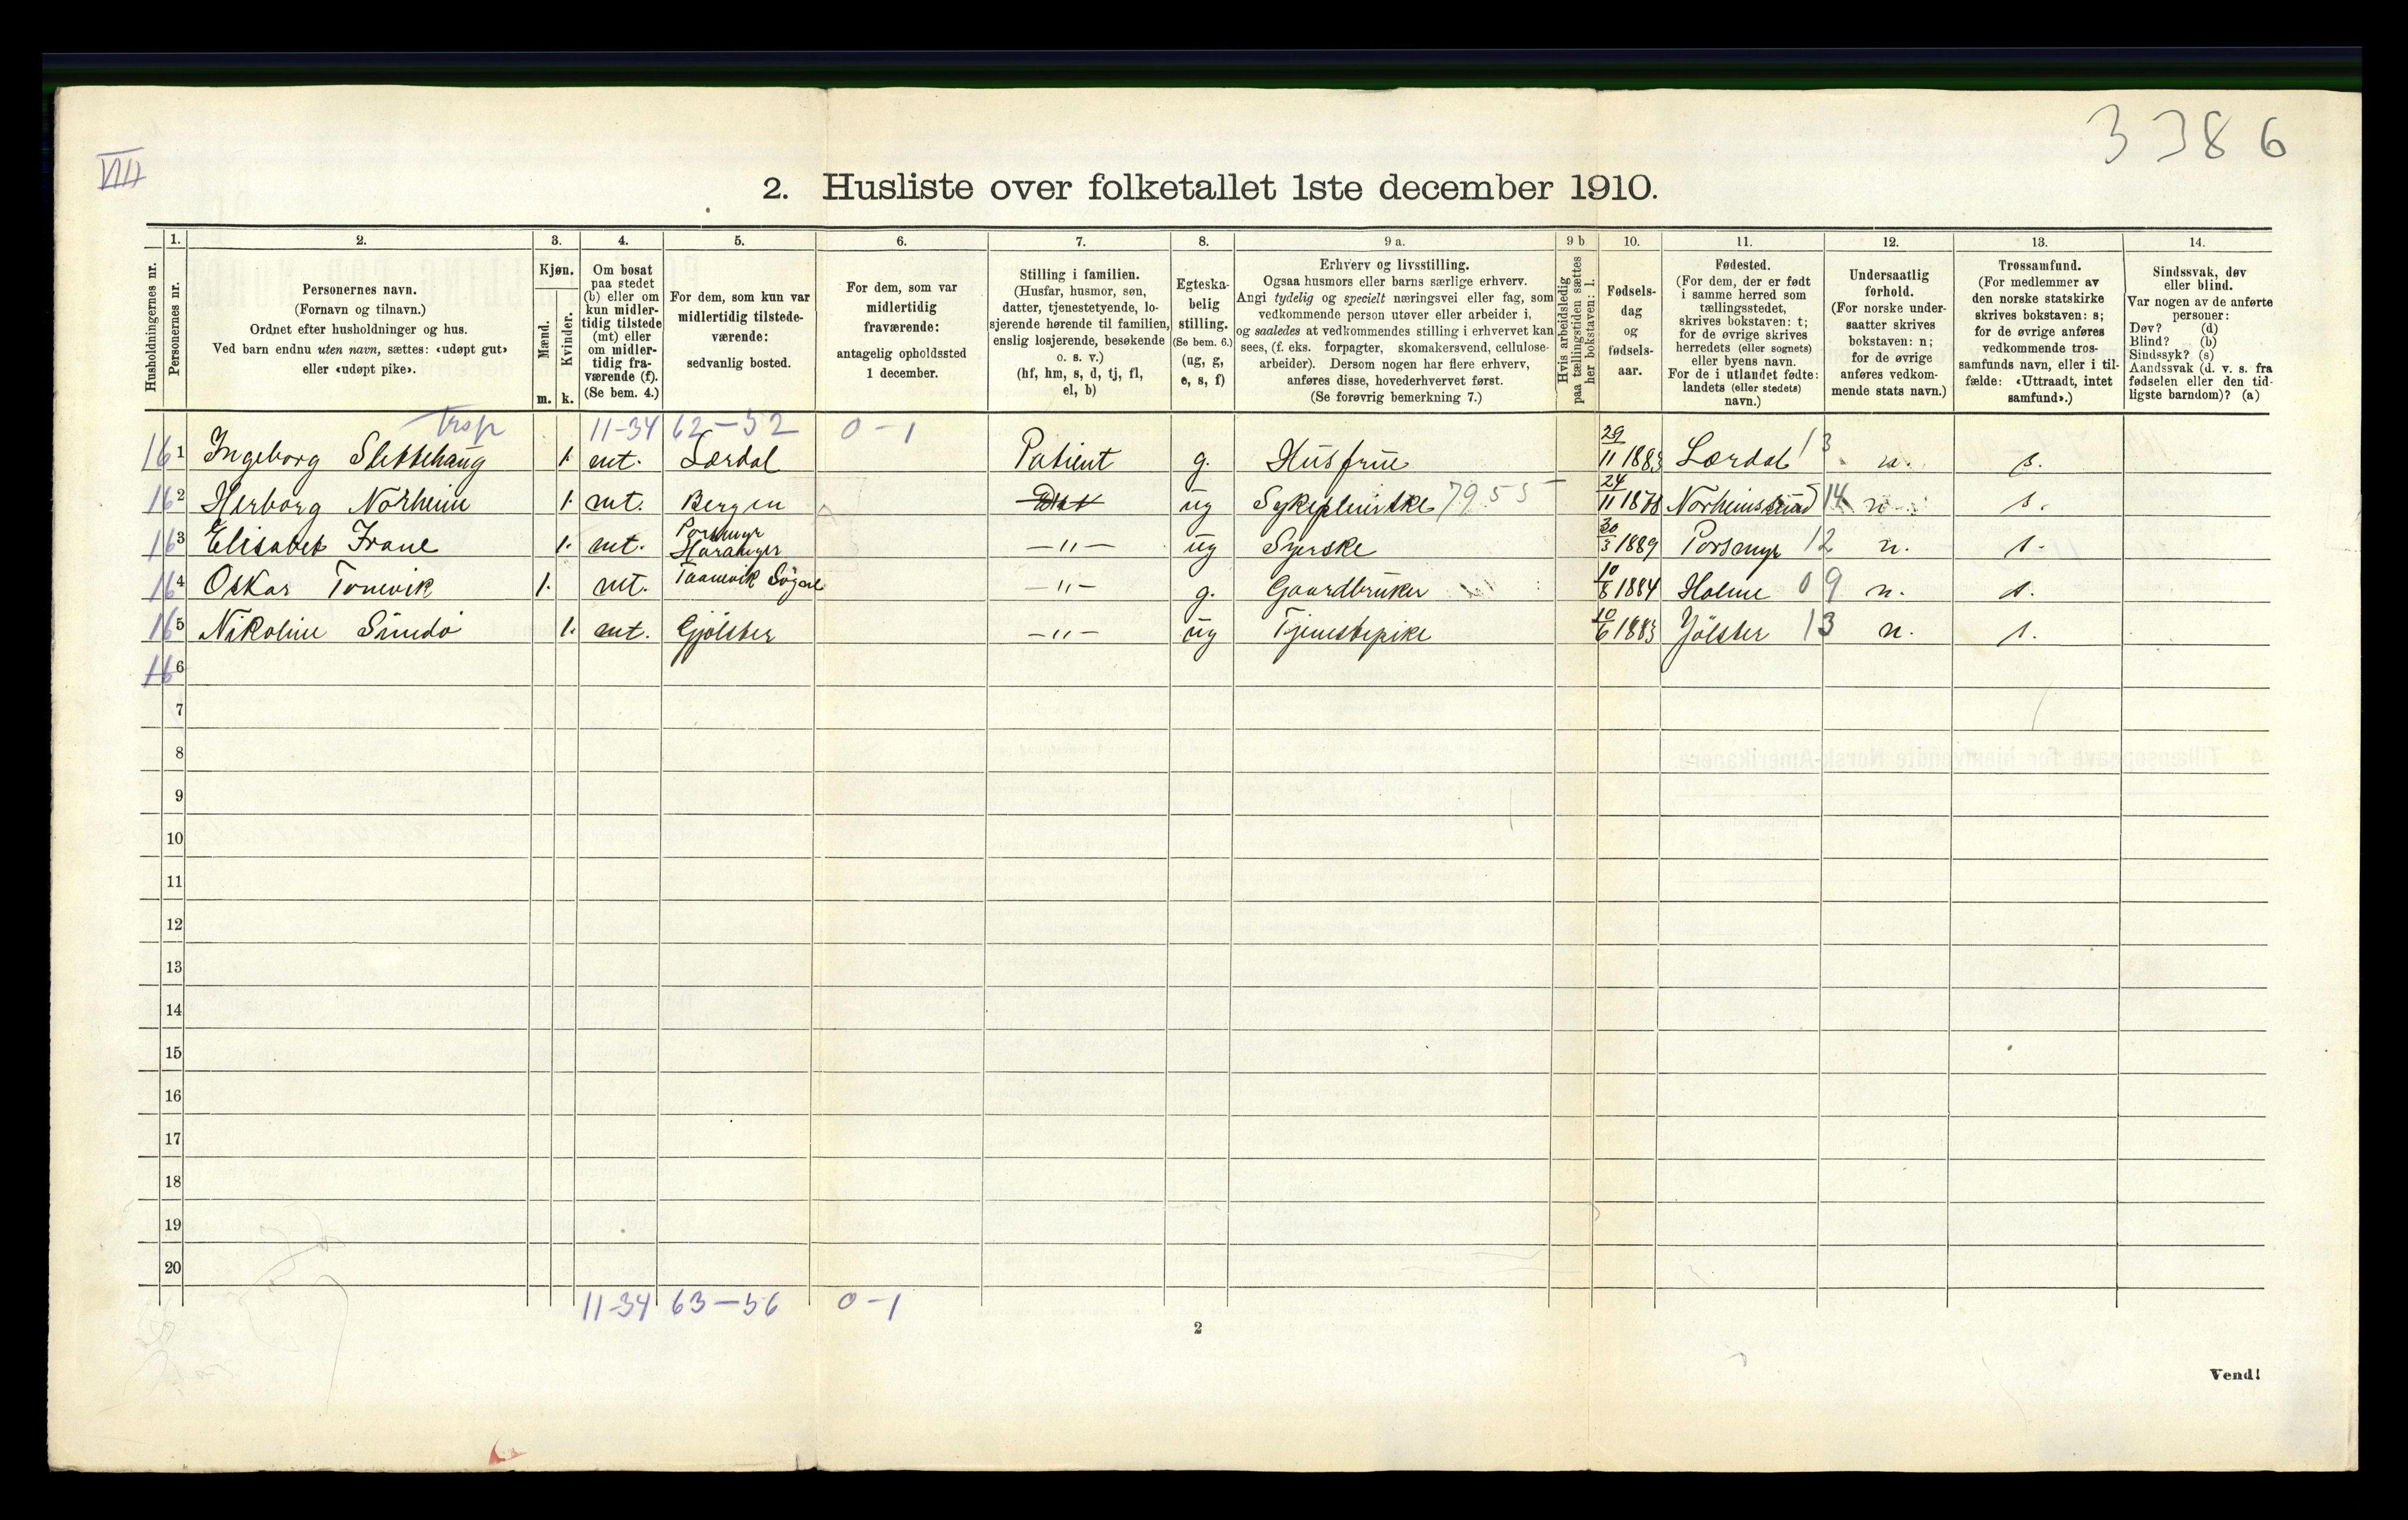 3386
VIII
2. Husliste over folketallet 1ste december 1910.
Husholdningernes nr.
1. Personernes nr.
2. Personernes navn.
(Fornavn og tilnavn.)
Ordnet efter husholdninger og hus.
Ved barn endnu uten navn, sættes: «udøpt gut»
eller «udøpt pike».
3. Kjøn.
Mænd. Kvinder.
m. k.
4. Om bosat
paa stedet
(b) eller om
kun midler-
tidig tilstede
(mt) eller
om midler-
tidig fra-
værende (f).
(Se bem. 4.)
5. For dem, som kun var
midlertidig tilstede-
værende:
sedvanlig bosted.
6. For dem, som var
midlertidig
fraværende:
antagelig opholdssted
1 december.
7. Stilling i familien.
(Husfar, husmor, søn,
datter, tjenestetyende, lo-
sjerende hørende til familien,
enslig losjerende, besøkende
o. s. v.)
(hf, hm, s, d, tj, fl,
el, b)
8. Egteska-
belig
stilling.
(Se bem. 6.)
(ug, g,
e, s, f)
9 a. Erhverv og livsstilling.
Ogsaa husmors eller barns særlige erhverv.
Angi tydelig og specielt næringsvei eller fag, som
vedkommende person utøver eller arbeider i,
og saaledes at vedkommendes stilling i erhvervet kan
sees, (f. eks. forpagter, skomakersvend, cellulose-
arbeider). Dersom nogen har flere erhverv,
anføres disse, hovederhvervet først.
(Se forøvrig bemerkning 7.)
9 b Hvis arbeidsledig
paa tællingstiden sættes
her bokstaven: l.
10. Fødsels-
dag
og
fødsels-
aar.
11. Fødested.
(For dem, der er født
i samme herred som
tællingsstedet,
skrives bokstaven: t;
for de øvrige skrives
herredets (eller sognets)
eller byens navn.
For de i utlandet fødte:
landets (eller stedets)
navn.)
12. Undersaatlig
forhold.
(For norske under-
saatter skrives
bokstaven: n;
for de øvrige
anføres vedkom-
mende stats navn.)
13. Trossamfund.
(For medlemmer av
den norske statskirke
skrives bokstaven: s;
for de øvrige anføres
vedkommende tros-
samfunds navn, eller i til-
fælde: «Uttraadt, intet
samfund».)
14. Sindssvak, døv
eller blind.
Var nogen av de anførte
personer:
Døv? (d)
Blind? (b)
Sindssyk? (s)
Aandssvak (d. v. s. fra
fødselen eller den tid-
ligste barndom)? (a)
11-34 62-52 0-1
16 1 Ingeborg Slettehaug 1. mt. Lærdal Patient g. Husfrue 29/11 1883 Lærdal 13 n. s.
16 2 Herborg Norheim 1. mt. Bergen ug Sykepleierske 7955 24/11 1878 Norheimsund 14 n s.
16 3 Elisabet Frane 1. mt. -"- ug Syerske 30/3 1889 12 n. s.
16 4 Oskar Tonevik 1. mt. -"- g. Gaardbruker 10/8 1884 Holme 09 n. s.
16 5 Nikoline Sundo 1. mt. Gjölster -"- ug Tjenestepike 10/6 1883 Jölster 13 n. s.
16 6
7
8
9
10
11
12
13
14
15
16
17
18
19
20
11-34 63-56 0-1
2
Vend!